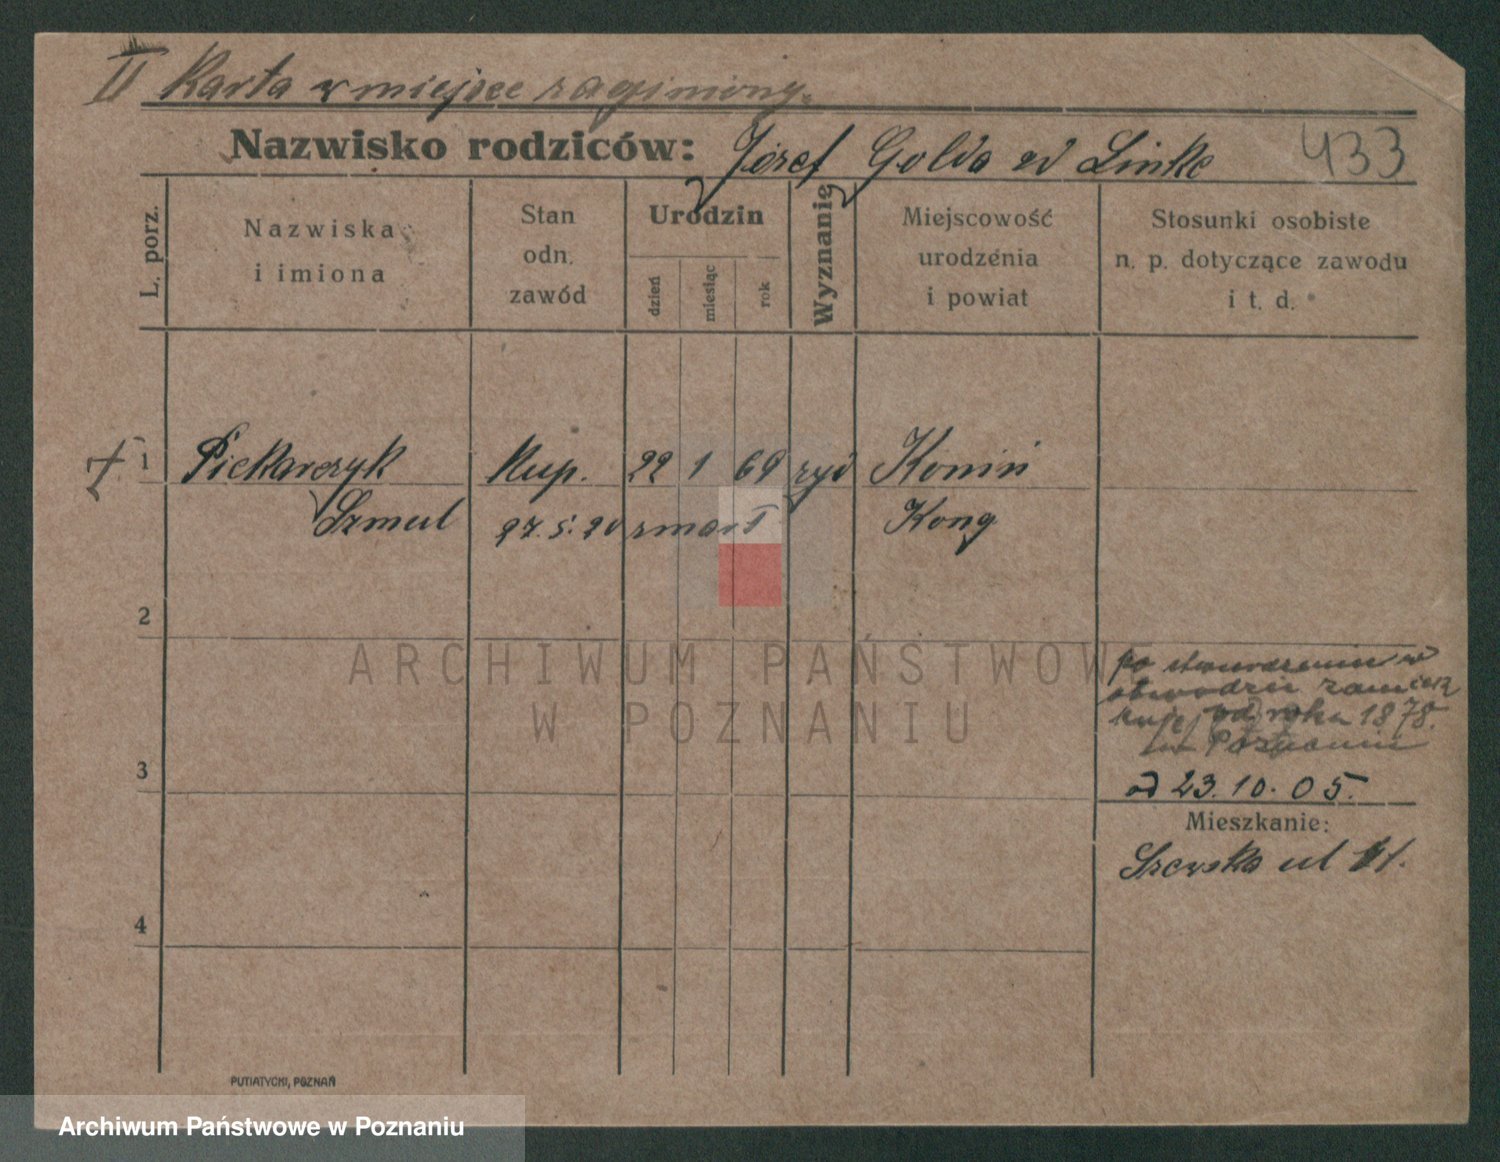 II Karta w miejsce zaginiony.
Nazwisko rodziców: Józef Golda zd Linke 433
L. porz.
Nazwiska
i imiona
Stan
odn.
zawód
Urodzin
dzień
miesiąc
rok
Wyznanię
Miejscowość
urodzenia
i powiat
Stosunki osobiste
n. p. dotyczące zawodu
i t. d.
1 Piekarczyk Kup. 22 1 69 żyd Konin
Szmul 27.5.20 zmarł Kong
2
po stwierdzeniu w
obwodzie zamiesz
kuje od roku 1878.
w Poznaniu
3
od 23.10.05.
Mieszkanie:
Szewska ul 11.
4
PUTIATYCKI, POZNAŃ
ARCHIWUM PAŃSTWOWE
W POZNANIU
Archiwum Państwowe w Poznaniu